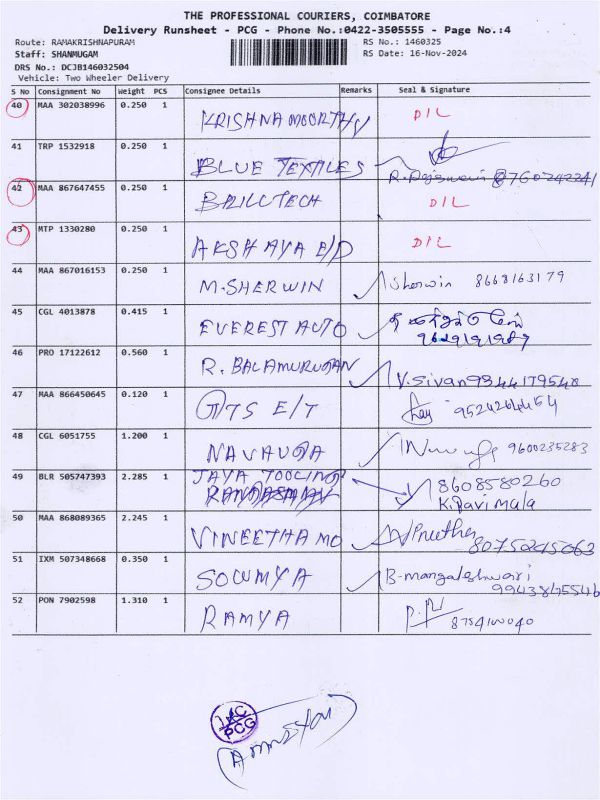 THE PROFESSIONAL COURIERS, COIMBATORE
Delivery Runsheet - PCG - Phone No.:0422-3505555 - Page No.:4
Route: RAMAKRISHNAPURAM RS No.: 1460325
Staff: SHANMUGAM RS Date: 16-Nov-2024
DRS No.: DCJB146032504
Vehicle: Two Wheeler Delivery
S No Consignment No Weight PCS Consignee Details Remarks Seal & Signature
40 MAA 302038996 0.250 1 KRISHNAMOORTHY DIL
41 TRP 1532918 0.250 1 BLUE TEXTILES
42 MAA 867647455 0.250 1 BRILLTECH DIL
43 MTP 1330280 0.250 1 AKSHAYA E/D DIL
44 MAA 867016153 0.250 1 M.SHERWIN Sherwin 8668163179
45 CGL 4013878 0.415 1 EVEREST AUTO
46 PRO 17122612 0.560 1 R. BALAMURUGAN V.Sivan 9344179548
47 MAA 866450645 0.120 1 GTS E/T 9524264454
48 CGL 6051755 1.200 1 9600235283
49 BLR 505747393 2.285 1 JAYA TOOLING 8608580260
K.Ravimala
50 MAA 868089365 2.245 1 VINEETHA MO Preetha
8075245063
51 IXM 507348668 0.350 1 SOWMYA B-mangaleshwari
9943865546
52 PON 7902598 1.310 1 RAMYA
PCG